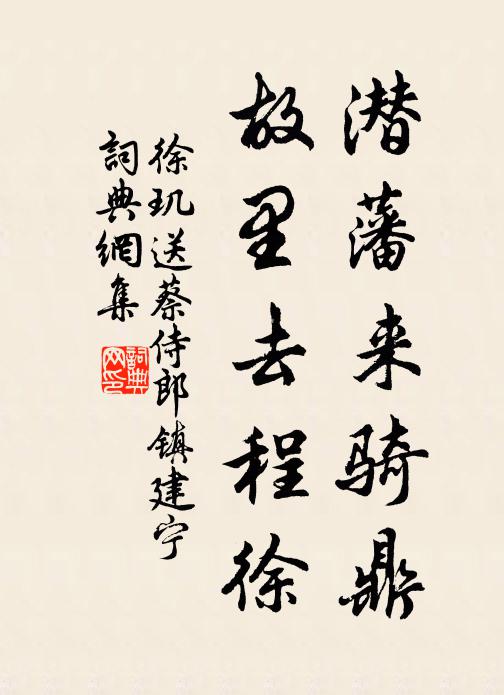 潜藩来骑鼎
故里去程徐
徐玑送蔡侍郎镇建宁
詞典網集
詞典网印